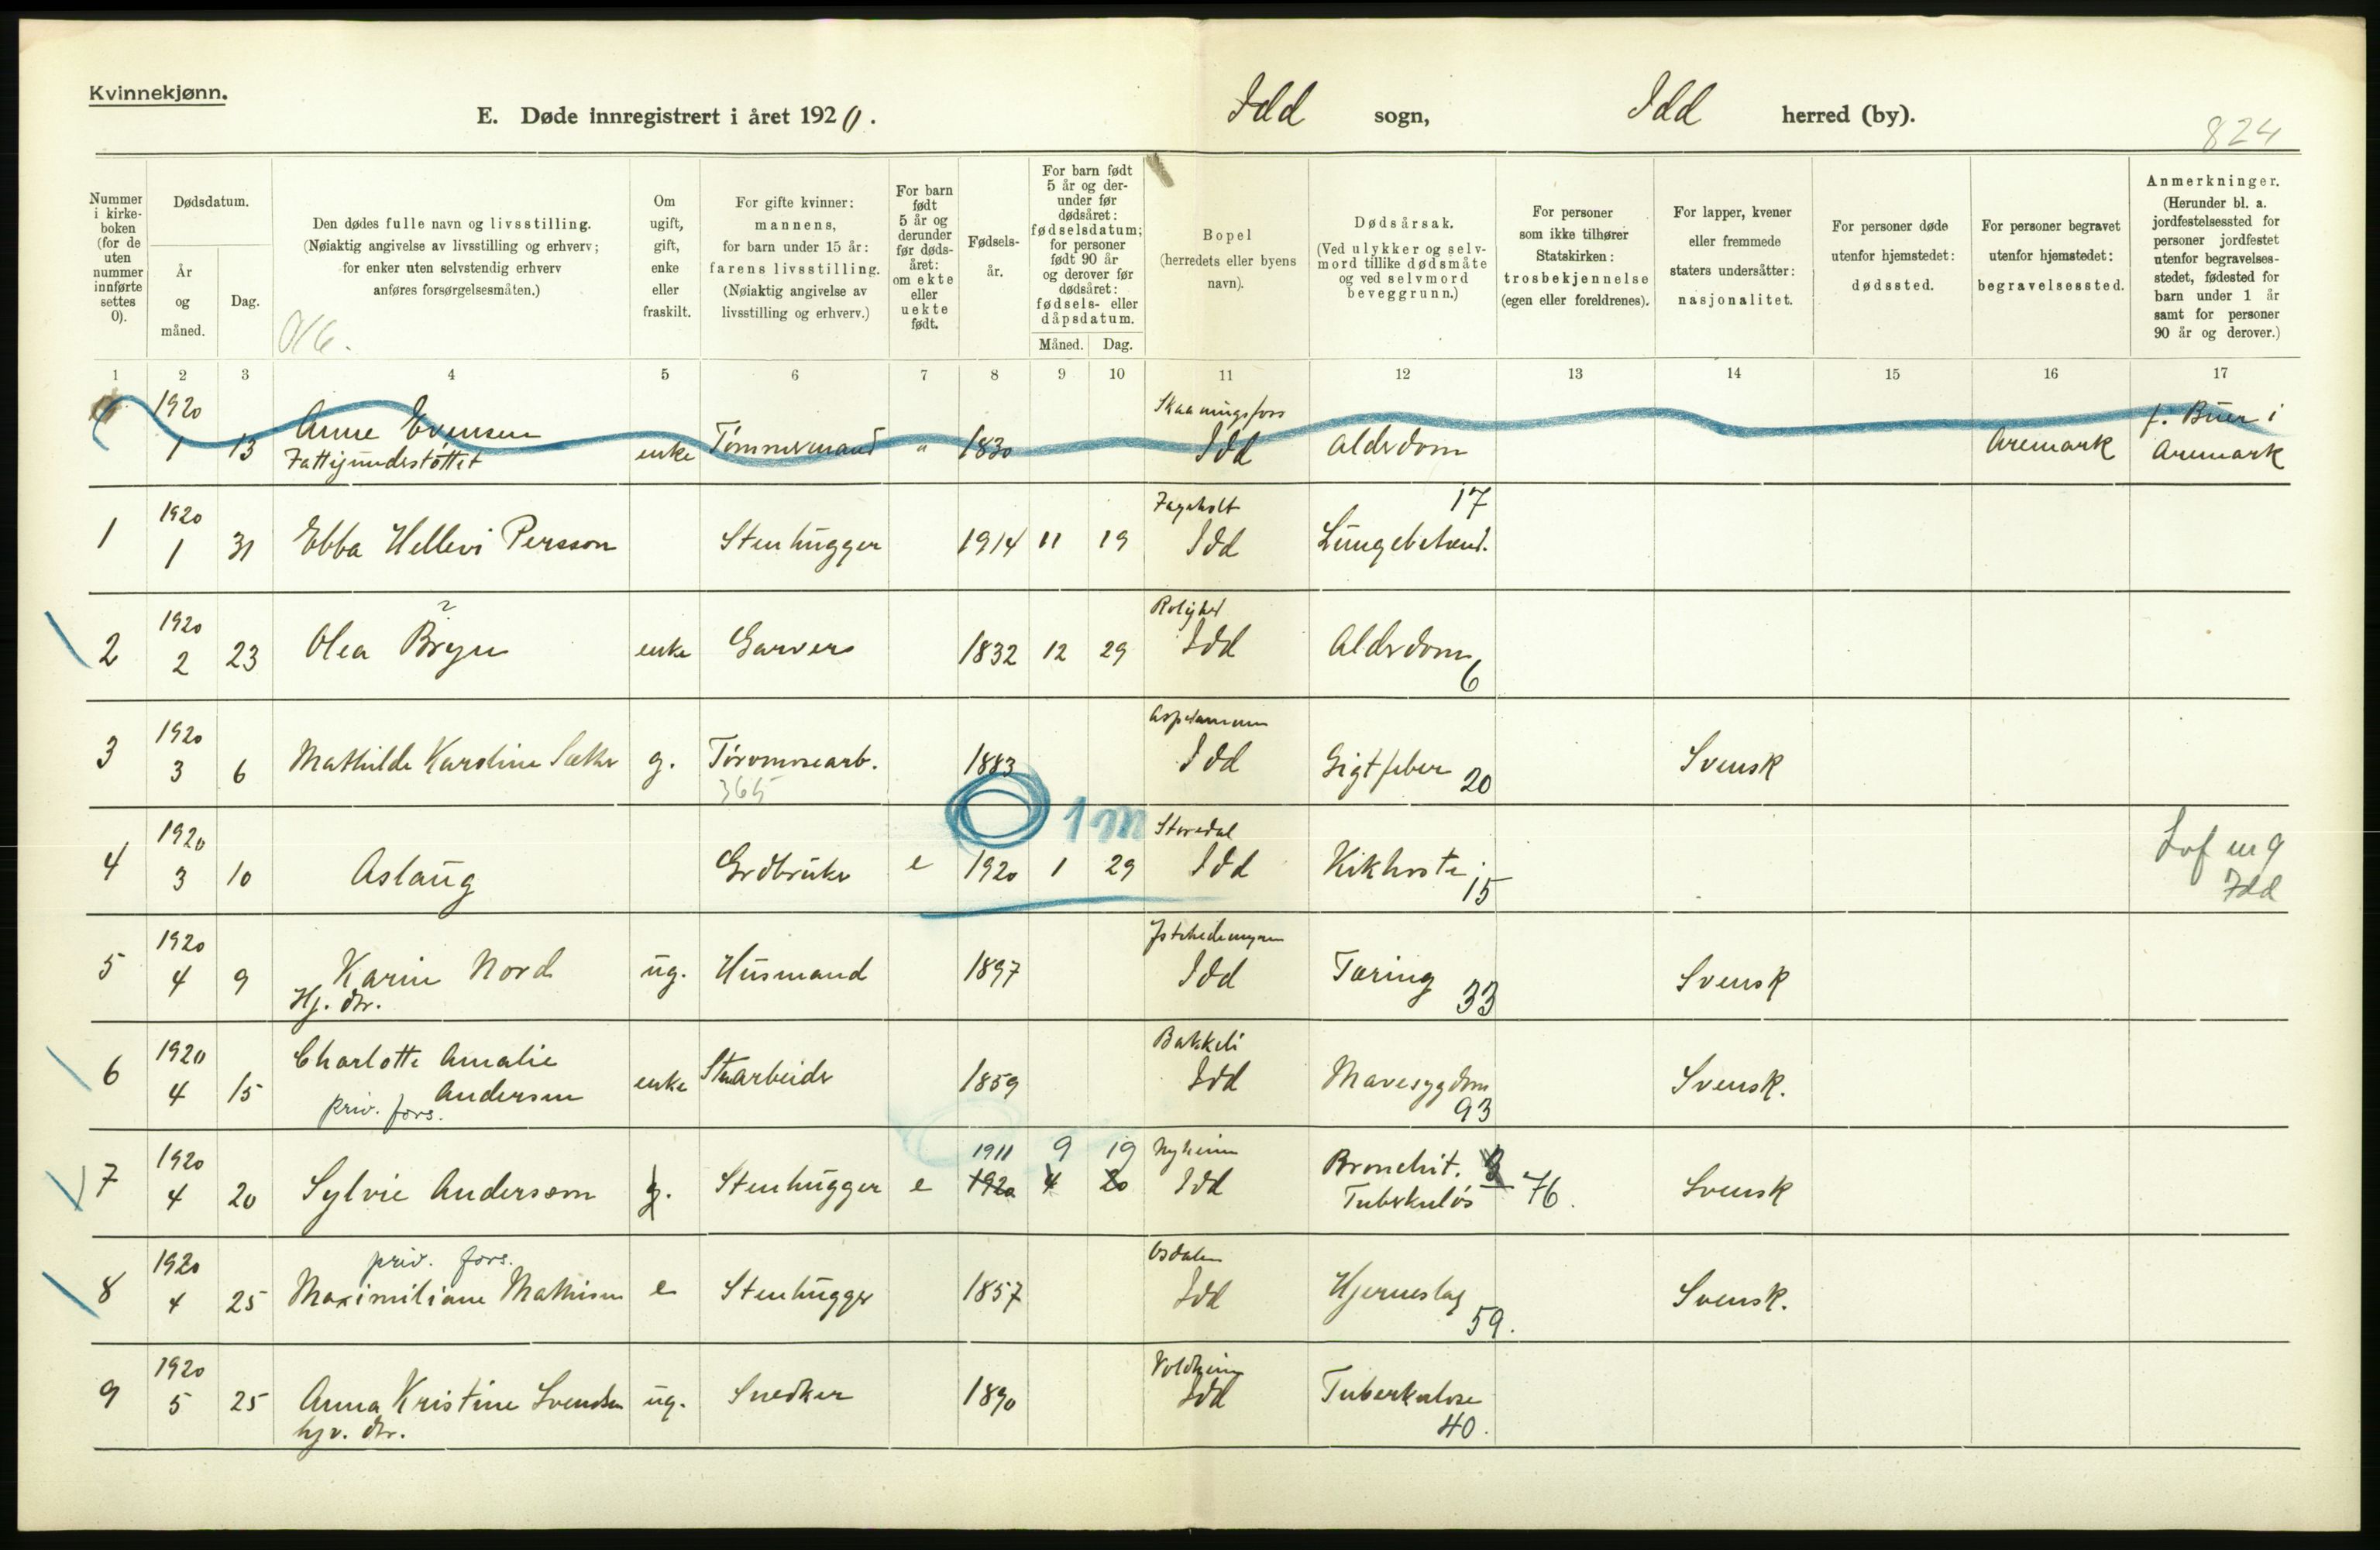 Kvinnekjønn.
E. Døde innregistrert i året 1920. Idd sogn, Idd herred (by).
824
Nummer i kirke-boken (for de uten nummer innførte settes 0).
Dødsdatum.
År og måned.
Dag.
Den dødes fulle navn og livsstilling.
(Nøiaktig angivelse av livsstilling og erhverv;
for enker uten selvstendig erhverv
anføres forsørgelsesmåten.)
Om ugift, gift, enke eller fraskilt.
For gifte kvinner: mannens, for barn under 15 år: farens livsstilling. (Nøiaktig angivelse av livsstilling og erhverv.)
For barn født 5 år og derunder før døds-året: om ekte eller uekte født.
Fødsels-år.
For barn født 5 år og der-under før dødsåret: fødselsdatum; for personer født 90 år og derover før dødsåret: fødsels- eller dåpsdatum.
Måned. Dag.
Bopel (herredets eller byens navn).
Dødsårsak. (Ved ulykker og selv-mord tillike dødsmåte og ved selvmord beveggrunn.)
For personer som ikke tilhører Statskirken: trosbekjennelse (egen eller foreldrenes).
For lapper, kvener eller fremmede staters undersåtter: nasjonalitet.
For personer døde utenfor hjemstedet: dødssted.
For personer begravet utenfor hjemstedet: begravelsessted.
Anmerkninger. (Herunder bl. a. jordfestelsessted for personer jordfestet utenfor begravelses-stedet, fødested for barn under 1 år samt for personer 90 år og derover.)
1 2 3 4 5 6 7 8 9 10 11 12 13 14 15 16 17
1920 Skaaningsfoss f. Buer i
1 13 Anne Evensen enke Tømmermand " 1830 Idd Alderdom Aremark Aremark
Fattigunderstøttet
1920 Fageholt 17
1 1 31 Ebba Hellevi Persson Stenhugger 1914 11 19 Idd Lungebetænd.
1920 Rolighed
2 2 23 Olea Bryn enke Garvers 1832 12 29 Idd Alderdom
6
1920
3 3 6 Mathilde Karoline Sæther g. Torvmosearb. 1883 Idd Gigtfeber 20 Svensk
365
1 m
1920 Storedal
4 3 10 Aslaug Grdbruker e 1920 1 29 Idd Kikhoste 15
Idd
1920
5 4 9 Karin Nord ug. Husmand 1897 Idd Tæring 33 Svensk
Hj. dtr.
1920 Charlotte Amalie Bakkeli
6 4 15 Andersen enke Stenarbeider 1859 Idd Mavesygdom Svensk.
priv. fors. 93
1920 1911 9 19 Nyheim Bronchit. 3
7 4 20 Sylvie Andersson g. Stenhugger e 1920 4 20 Idd Tuberkuløs 76. Svensk
1920 priv. fors. Osdalen
8 4 25 Maximiliane Mathisen e Stenhugger 1857 Idd Hjerneslag Svensk.
59.
1920 Voldheim
9 5 25 Anna Kristine Svendsen ug. Snedker 1890 Idd Tuberkulose
hjv. dtr. 40.